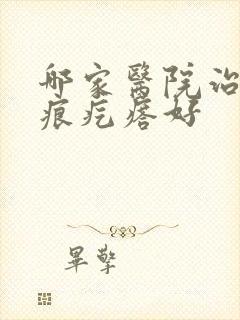 哪家醫院治
痕疙瘩好
畢擎